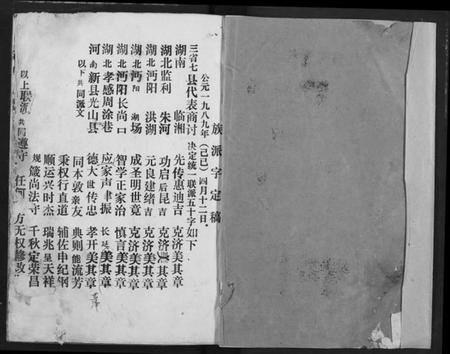 族派字定稿
公元一九八九年(己巳)四月十二日。
三省七县代表商讨决定统一联派五十字如下
湖南 临湘 先传惠迪吉 克济美其章
湖北监利 朱河 功启后昆吉 克济美其章
湖北沔阳 洪湖 元良建绪吉 克济美其章
湖北沔阳 场 成圣明世竟 克济美其章
湖北沔阳长尚口 智学正家治 慎言美其章
湖北孝感周涂巷 应家声聿振 美其章
河南新县光山县 德大世传忠 孝开美其章
以下共同派文
同本敦亲友 典则能流芳
秉权行直道 辅佐申纪钢
顺运兴时杰 瑞兆呈天祥
规箴尚法守 千秋定荣昌
以上联派共同遵守 任何 方无权修改